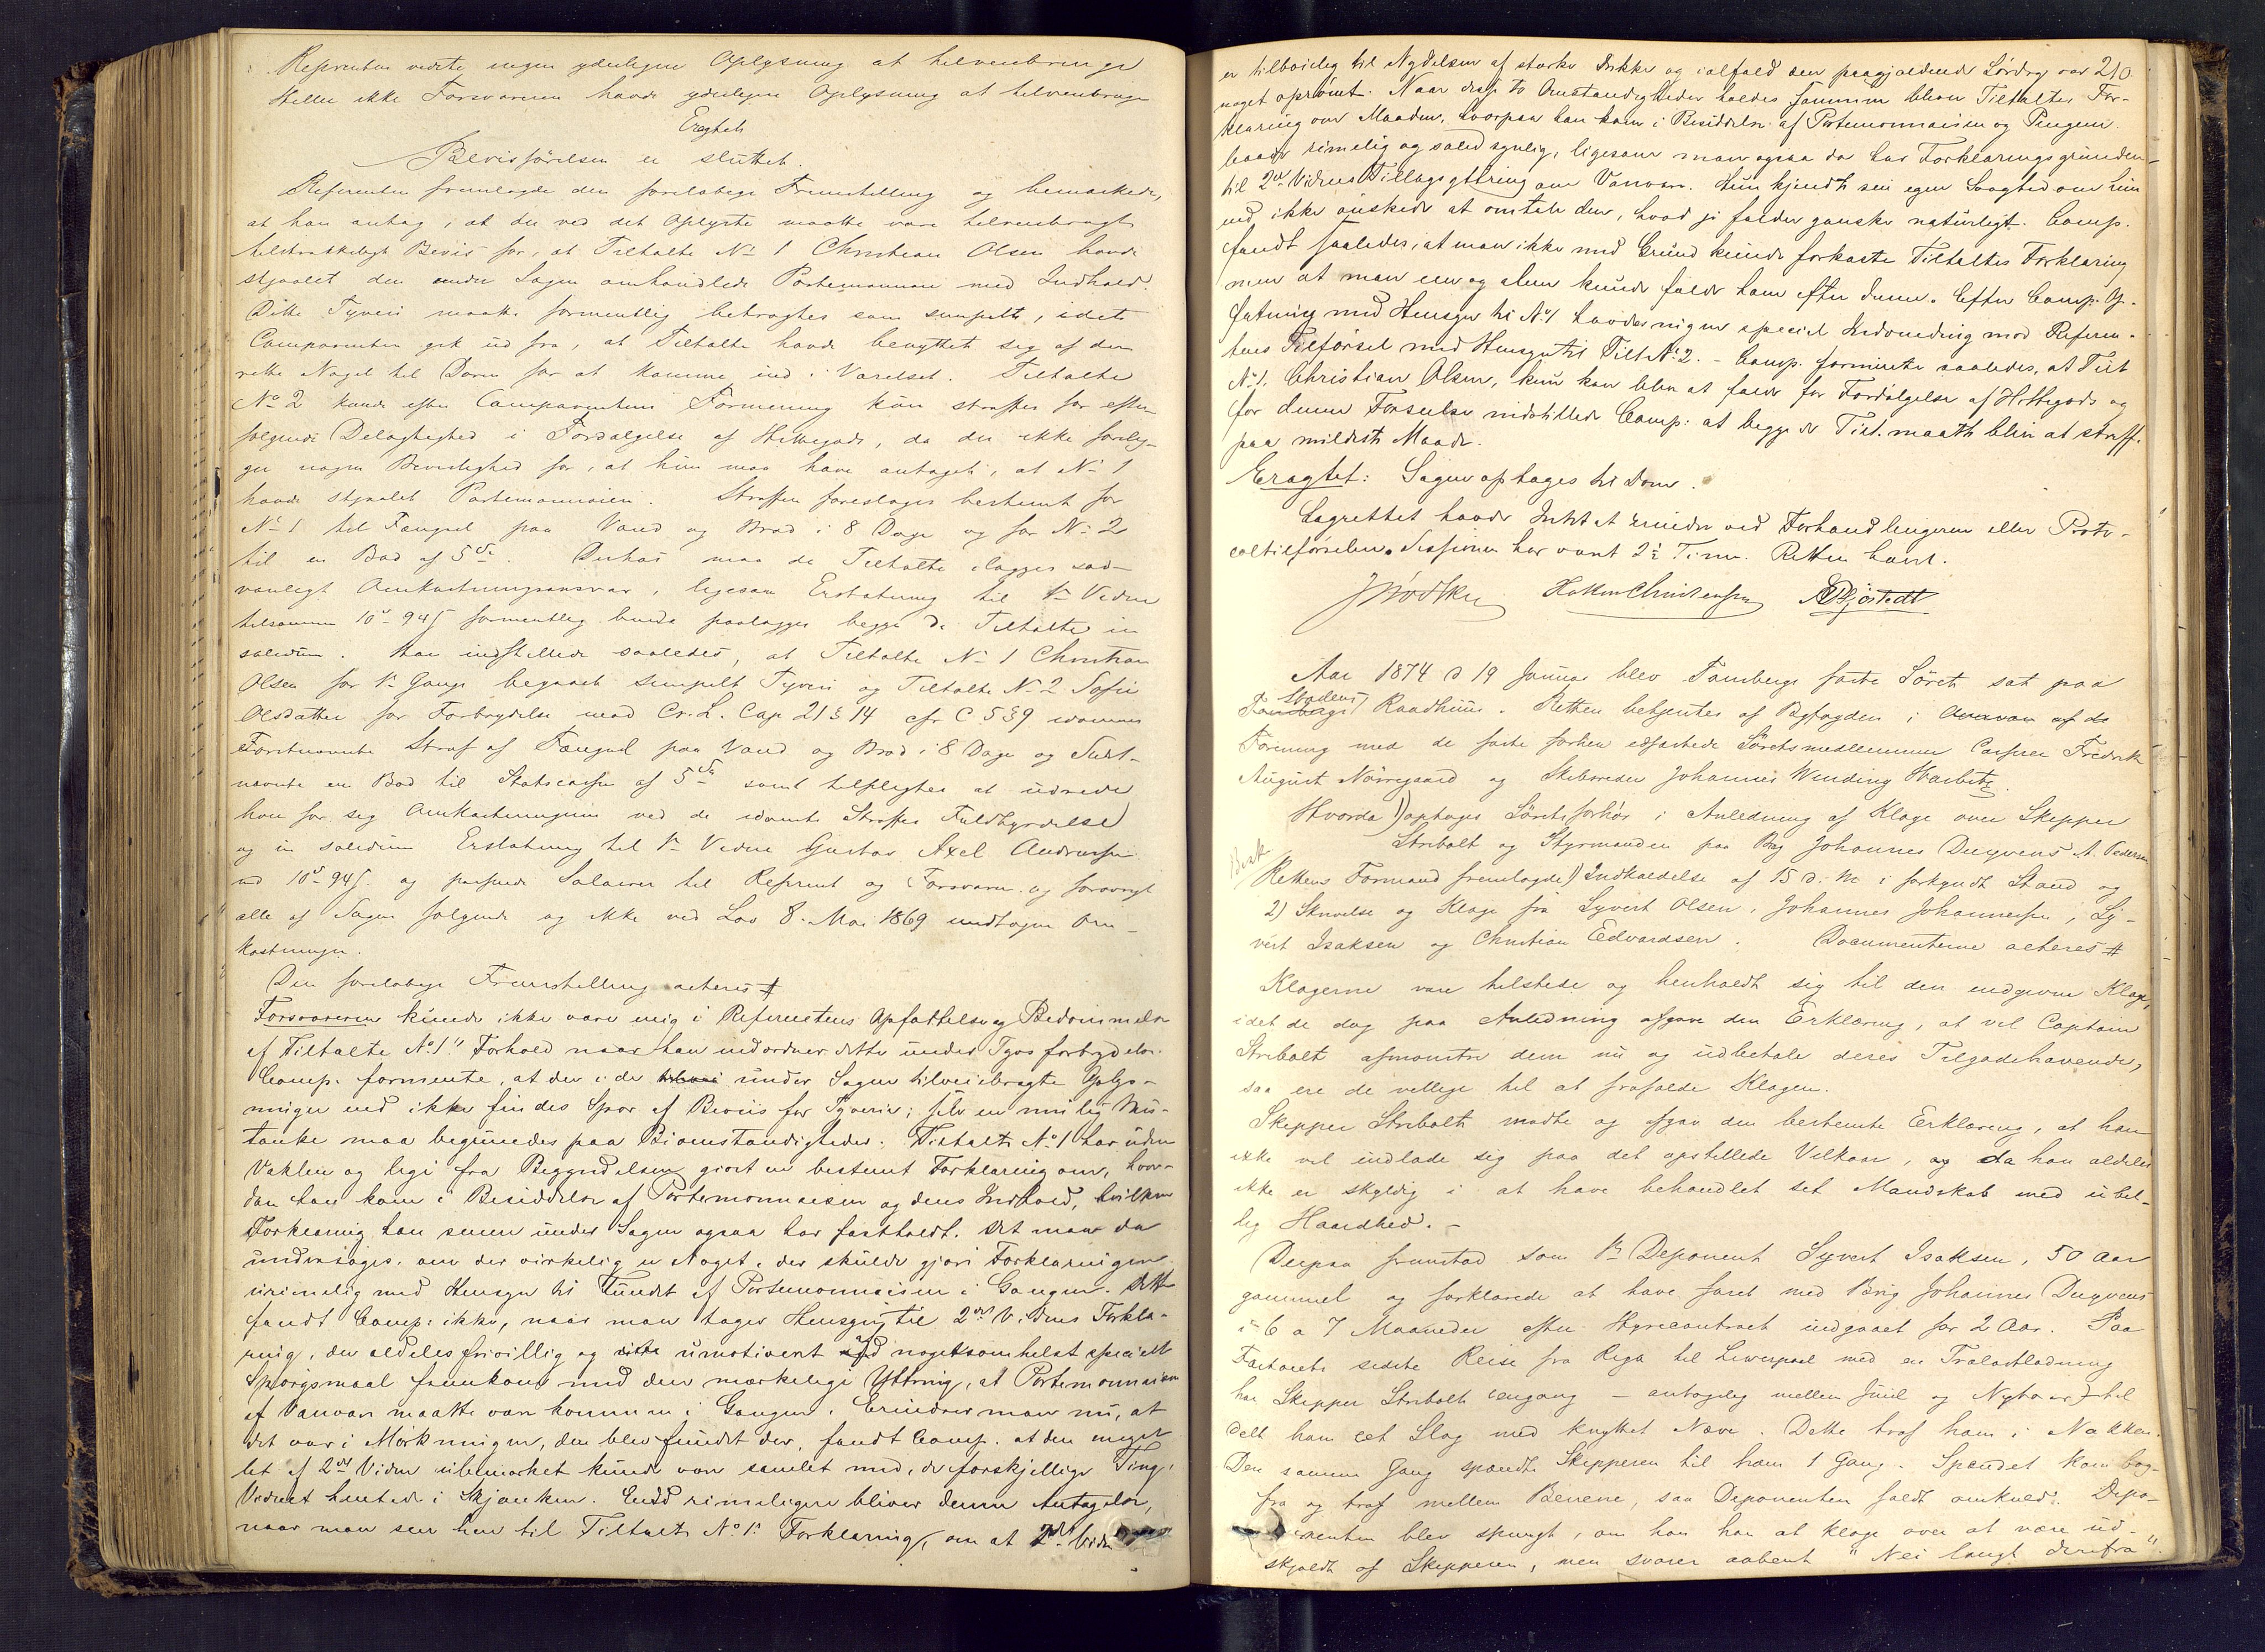 Referenten vidste ingen yderligere Oplysning at tilveiebringe
Heller ikke Forsvareren havde yderligere Oplysning at tilveiebringe
Eragtet
Bevisførelsen er sluttet.
Referenten fremlagde den foreløbige Fremstilling og bemærkede,
at han antog, at der ved det Oplyste maatte være tilveiebragt
tilstrækkeligt Bevis for, at Tiltalte No 1 Christian Olsen havde
stjaalet den under Sagen omhandlede Portemonnaie med Indhold.
Dette Tyveri maatte formentlig betragtes som simpelt, idet
Comparenten gik ud fra, at Tiltalte havde benyttet sig af den
rette Nøgel til Døren for at komme ind i Værelset. Tiltalte
No 2 kunde efter Comparentens Formening kun straffes for efter-
følgende Delagtighed i Fordølgelse af Hittegods, da der ikke forelig-
ger nogen Bevislighed for, at hun maa have antaget, at No 1
havde stjaalet Portemonnaien. Straffen foreslages bestemt for
No 1 til Fængsel paa Vand og Brød i 8 Dage og for No 2
til en Bod af 5 Sp. Derhos maa de Tiltalte ilægges sæd-
vanligt Omkostningsansvar, ligesom Erstatning til 1ste Vidne
tilsammen 10 - 94 s formentlig burde paalægges begge de Tiltalte in
solidum. Han indstillede saaledes, at Tiltalte No 1 Christian
Olsen for 1ste Gang begaaet simpelt Tyveri og Tiltalte No 2 Sofie
Olsdatter for Forbrydelse mod Cr. L. Cap 21 § 14 cfr C 5 § 9 idømmes
Førstnævnte Straf af Fængsel paa Vand og Brød i 8 Dage og Sidst-
nævnte en Bod til Statscassen af 5 Sp samt tilpligtes at udrede
hver for sig Omkostningerne ved de idømte Straffes Fuldbyrdelse
og in solidum Erstatning til 1ste Vidne Gustav Axel Andersen
med 10 - 94 s. og passende Salairer til Referent og Forsvarer og forøvrigt
alle af Sagen følgende og ikke ved Lov 8. Mai 1869 undtagne Om-
kostninger.
Den foreløbige Fremstilling acteres #
Forsvareren kunde ikke være enig i Referentens Opfattelse og Bedømmelse
af Tiltalte No 1's Forhold naar han indordner dette under Tyvsforbrydelse.
Comp. formente, at der i de under Sagen tilveiebragte Oplys-
ninger end ikke findes Spor af Beviis for Tyverie; selv en rimelig Mis-
tanke maa begrundes paa Biomstændigheder. Tiltalte No 1 har uden
Vaklen og lige fra Begyndelsen gjort en bestemt Forklaring om, hvor-
dan han kom i Besiddelse af Portemonnaien og dens Indhold, hvilken
Forklaring han senere under Sagen ogsaa har fastholdt. Det maa da
undersøges, om der virkelig er Noget, der skulde gjøre Forklaringen
urimelig med Hensyn til Fundet af Portemonnaien i Gangen. Dette
fandt Comp: ikke, naar man tager Hensyn til 2det Vidnes Forkla-
ring, der aldeles frivillig og umotiveret ved nogetsomhelst specielt
Spørgsmaal fremkom med den mærkelige Yttring, at Portemonnaien
af Vanvare maatte være kommen i Gangen. Erindrer man nu, at
det var i Mørkningen, den blev fundet der, fandt Comp. at den meget
let af 2det Vidne ubemærket kunde være samlet med, de forskjellige Ting,
Vidnet hentede i Skjænken. Endd rimeligere bliver denne Antagelse,
naar man seer hen til Tiltalte No 1s Forklaring, om at 2det Vidne
er tilbøielig til Nydelsen af stærke Drikke og ialfald den paagjældende Lørdag var 210
noget oprømt. Naar disse to Omstændigheder holdes sammen bliver Tiltaltes For-
klaring om Maaden, hvorpaa han kom i Besiddelse af Portemonnaien og Pengene
baade rimelig og sandsynlig, ligesom man ogsaa da har Forklaringsgrunden
til 2det Vidnes Tillægsyttring om Vanvare. Hun kjendte sin egen Svaghed om hun
end ikke ønskede at omtale den, hvad jo falder ganske naturligt. Comp.
fandt saaledes, at man ikke med Grund kunde forkaste Tiltaltes Forklaring
men at man ene og alene kunde fælde ham efter denne. Efter Comp. Op-
fatning med Hensyn til No 1 havdes ingen speciel Indvending mod Referen-
tens Tilførsel med Hensyn til Tilt No 2. - Comp. formente saaledes, at Tilt
No 1. Christian Olsen, kun kan blive at fælde for Fordølgelse af Hittegods og
for denne Forseelse indstillede Comp: at begge de Tilt. maatte blive at straffe
paa mildeste Maade.
Eragtet: Sagen optages til Dom.
Lagrettet havde Intet at erindre ved Forhandlingerne eller Proto-
coltilførselen. Sessionen har varet 2½ Time. Retten hævet.
Hakon Christensen
Aar 1874 d 19 Januar blev Tønsbergs faste Søret sat paa
Stadens Raadhuus. Retten betjentes af Byfogden i
Forening med de faste forhen edfæstede Søretsmedlemmer Casper Fredrik
August Nørregaard og Skibsreder Johannes Wending Harbitz.
Hvorda 1) optoges Søretsforhør i Anledning af Klage over Skipper
Stribolt og Styrmanden paa Brig Johannes Duyvens A. Pedersen
Rettens Formand fremlagde 1) Indkaldelse af 15 d. M. i forkyndt Stand og
2) Skrivelse og Klage fra Syvert Olsen, Johannes Johannesen, Sy-
vert Isaksen og Christian Edvardsen. Documenterne acteres #
Klagerne vare tilstede og henholdt sig til den indgivne Klage,
idet de dog paa Anledning afgave den Erklæring, at vil Captain
Stribolt afmønstre dem nu og udbetale deres Tilgodehavende,
saa ere de villige til at frafalde Klagen.
Skipper Stribolt mødte og afgav den bestemte Erklæring, at han
ikke vil indlade sig paa det opstillede Vilkaar, og da han aldeles
ikke er skyldig i at have behandlet set Mandskab med ubil-
lig Haardhed. -
Derpaa fremstod som 1ste Deponent Syvert Isaksen, 50 Aar
gammel og forklarede at have faret med Brig Johannes Duyvens
i 6 a 7 Maaneder efter Hyrecontract indgaaet for 2 Aar. Paa
Fartøiets sidste Reise fra Riga til Liverpool med en Trælastladning
har Skipper Stribolt engang - antagelig mellem Juul og Nytaar - til-
delt ham eet Slag med knyttet Næve. Dette traf ham i Nakken.
Den samme Gang spændte Skipperen til ham 1 Gang. Spændet kom bag-
fra og traf mellem Benene, saa Deponenten faldt omkuld. Depo-
nenten blev spurgt, om han har at klage over at være ud-
skjældt af Skipperen, men svarer aabent "Nei langt derifra".